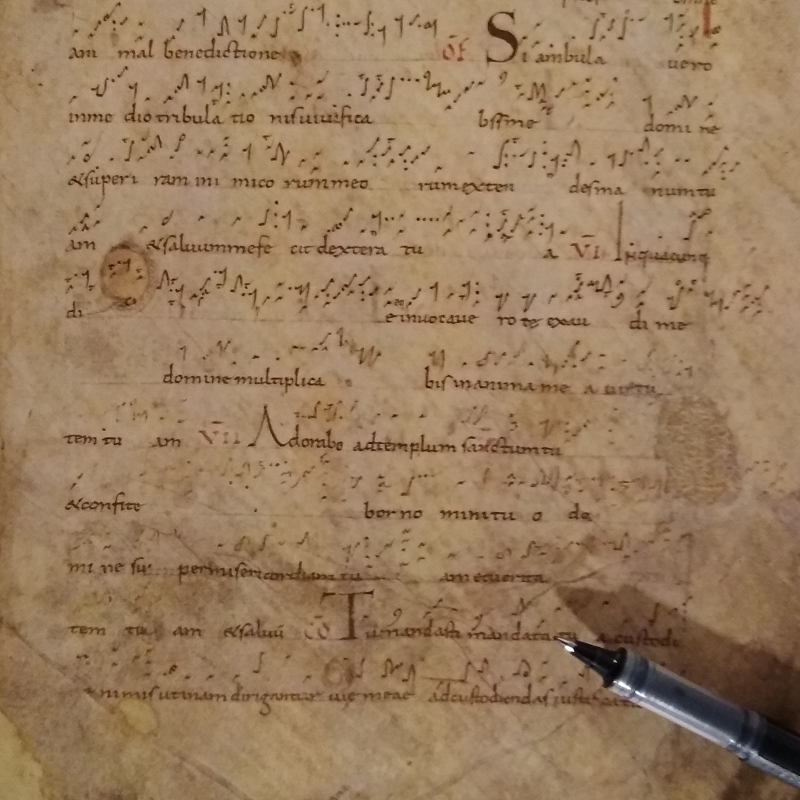 am mal benedictione of Si ambula vero
inme diotribula tio nisuiuifica bissme domi ne
&superi ram ini mico rummeo rumexten desma numtu
am &saluummefe cit dextera tu a VI Inquacumq
di e inuocaue ro te exau di me
domine multiplica bis inanima me a uirtu
tem tu am VII Adorabo adtemplum sanctumtu
&confite bor no minitu o do
mi ne su per misericordiam tu am etuerita
tem tu am &saluū cō Tu mandasti mandata tu a custodi
nimis utinam dirigantur uie meae adcustodiendas iustificatio